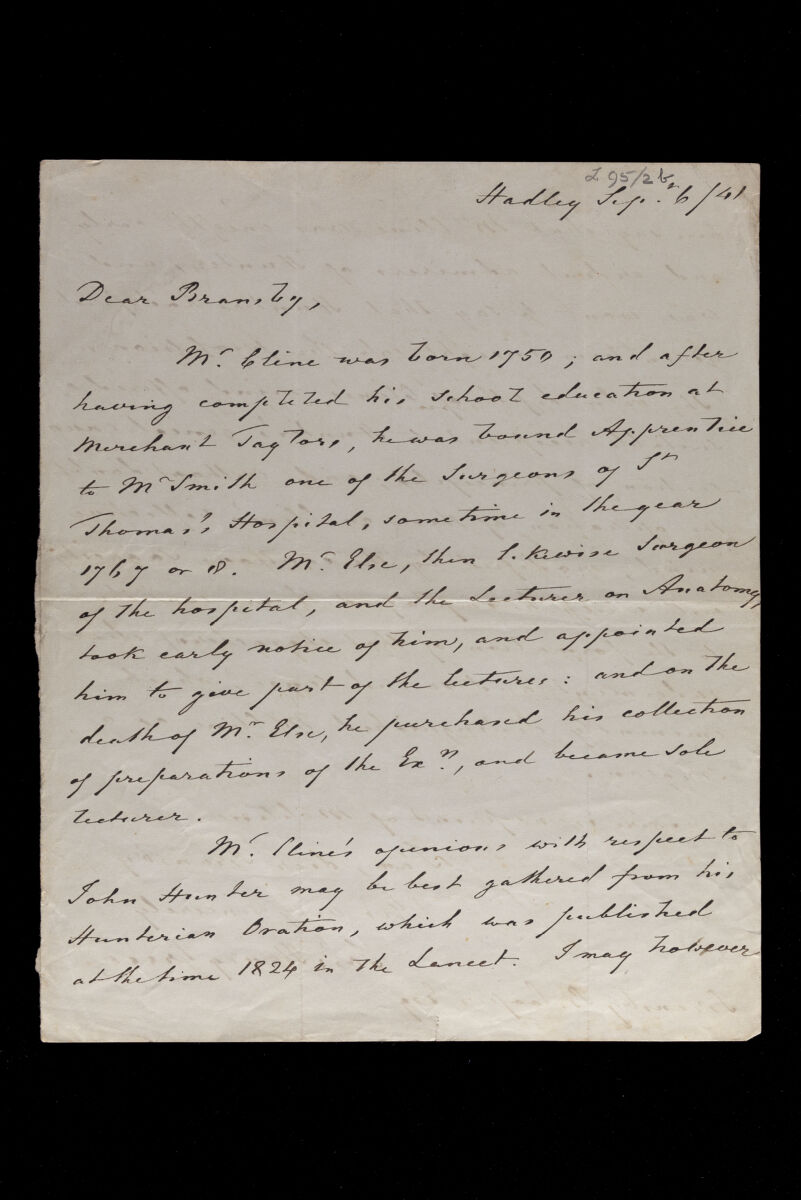 L 95/2b
Hadley Sep.r 6/41
Dear Bransby,
Mr. Cline was born 1750; and after
having completed his school education at
Merchant Taylors, he was bound Apprentice
to Mr Smith one of the Surgeons of St
Thomas's Hospital, sometime in the year
1767 or 8. Mr. Else, then likewise Surgeon
of the hospital, and the Lecturer on Anatomy,
took early notice of him, and appointed
him to give part of the lectures: and on the
death of Mr. Else, he purchased his collection
of preparations of the Exn., and became sole
lecturer.
Mr. Cline's opinions with respect to
John Hunter may be best gathered from his
Hunterian Oration, which was published
at the time 1824 in the Lancet. I may however